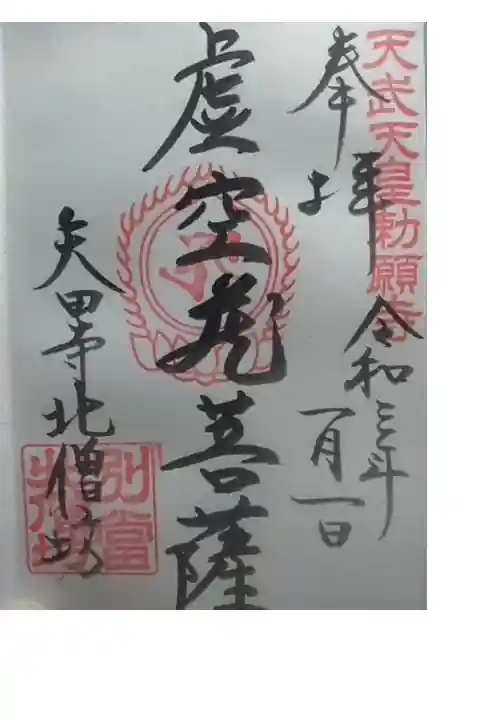 天武天皇勅願寺
奉拝
令和三年
一月一日
虚空蔵菩薩
矢田寺北僧坊
別当
北僧坊